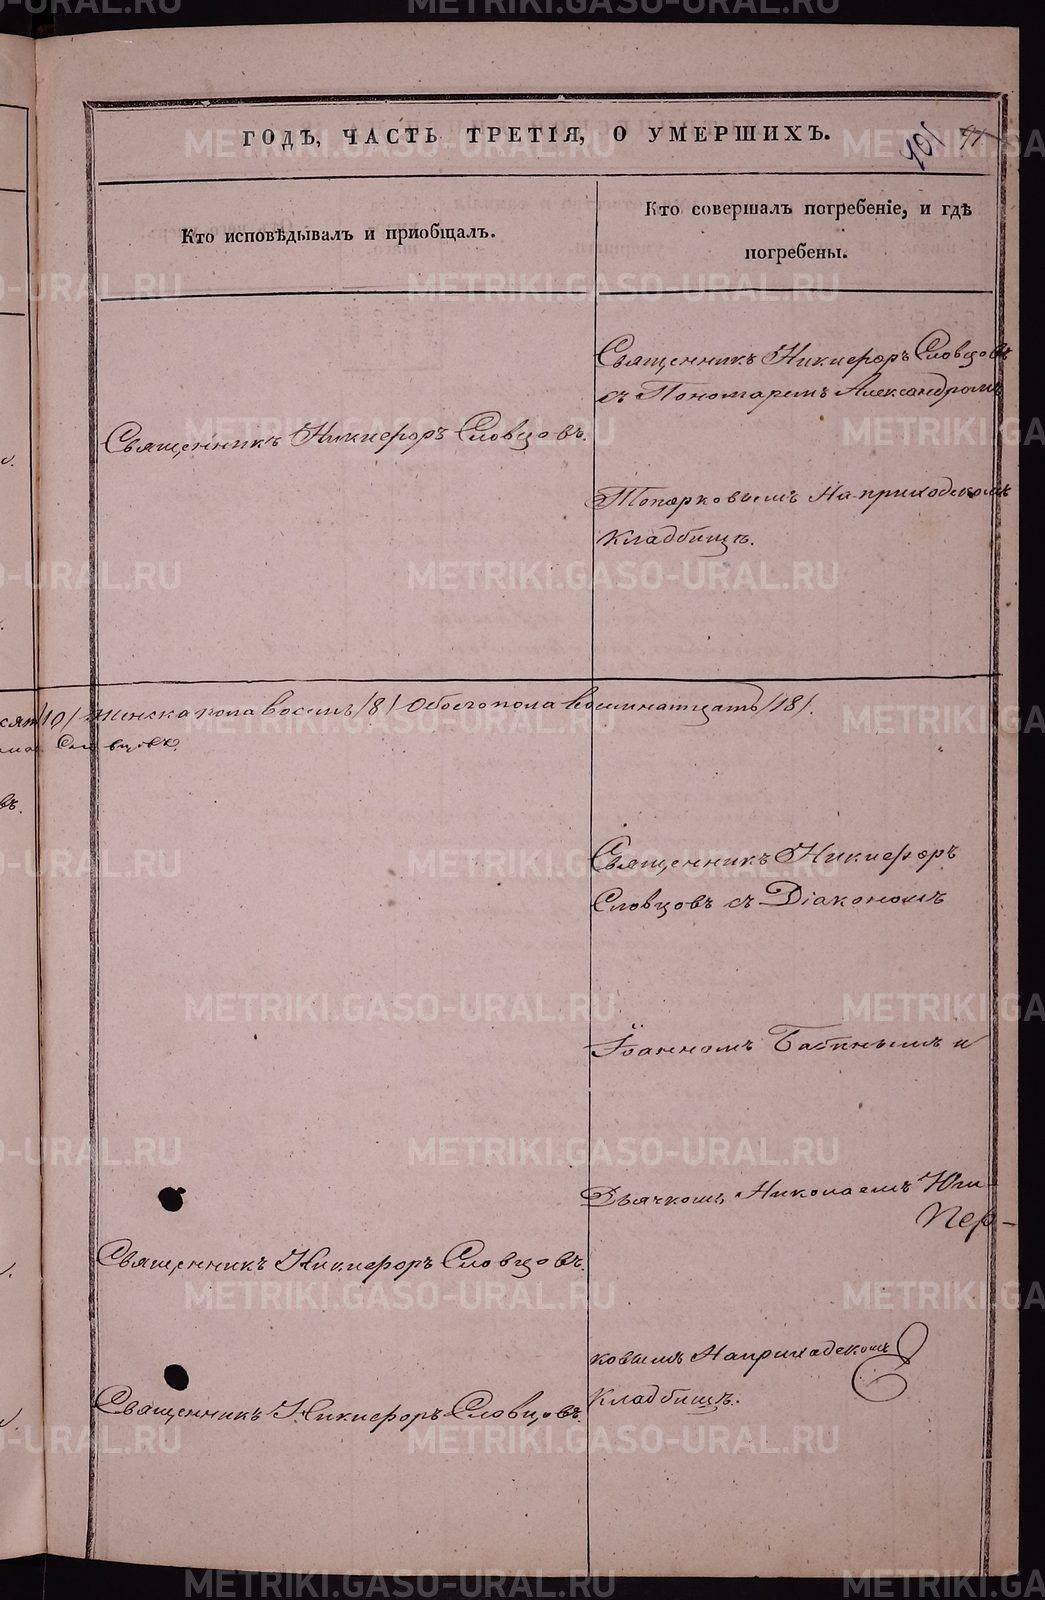 ГОДЪ, ЧАСТЬ ТРЕТІЯ, О УМЕРШИХЪ.
101
Кто исповѣдывалъ и пріобщалъ.
Кто совершалъ погребеніе, и гдѣ
погребены.
Священникъ Никифоръ Словцовъ
съ Пономаремъ Александромъ
Священникъ Никифоръ Словцовъ.
Топорковымъ На приходскомъ
кладбищѣ.
/10/ женска пола восемь /8/ обоего пола восемнатцать /18/.
Словцовъ.
Священникъ Никифоръ
Словцовъ съ Діакономъ
Іоанномъ Бабинымъ и
Дьячкомъ Николаемъ
Священникъ Никифоръ Словцовъ.
ковымъ На приходскомъ
кладбищѣ.
Священникъ Никифоръ Словцовъ.
METRIKI.GASO-URAL.RU